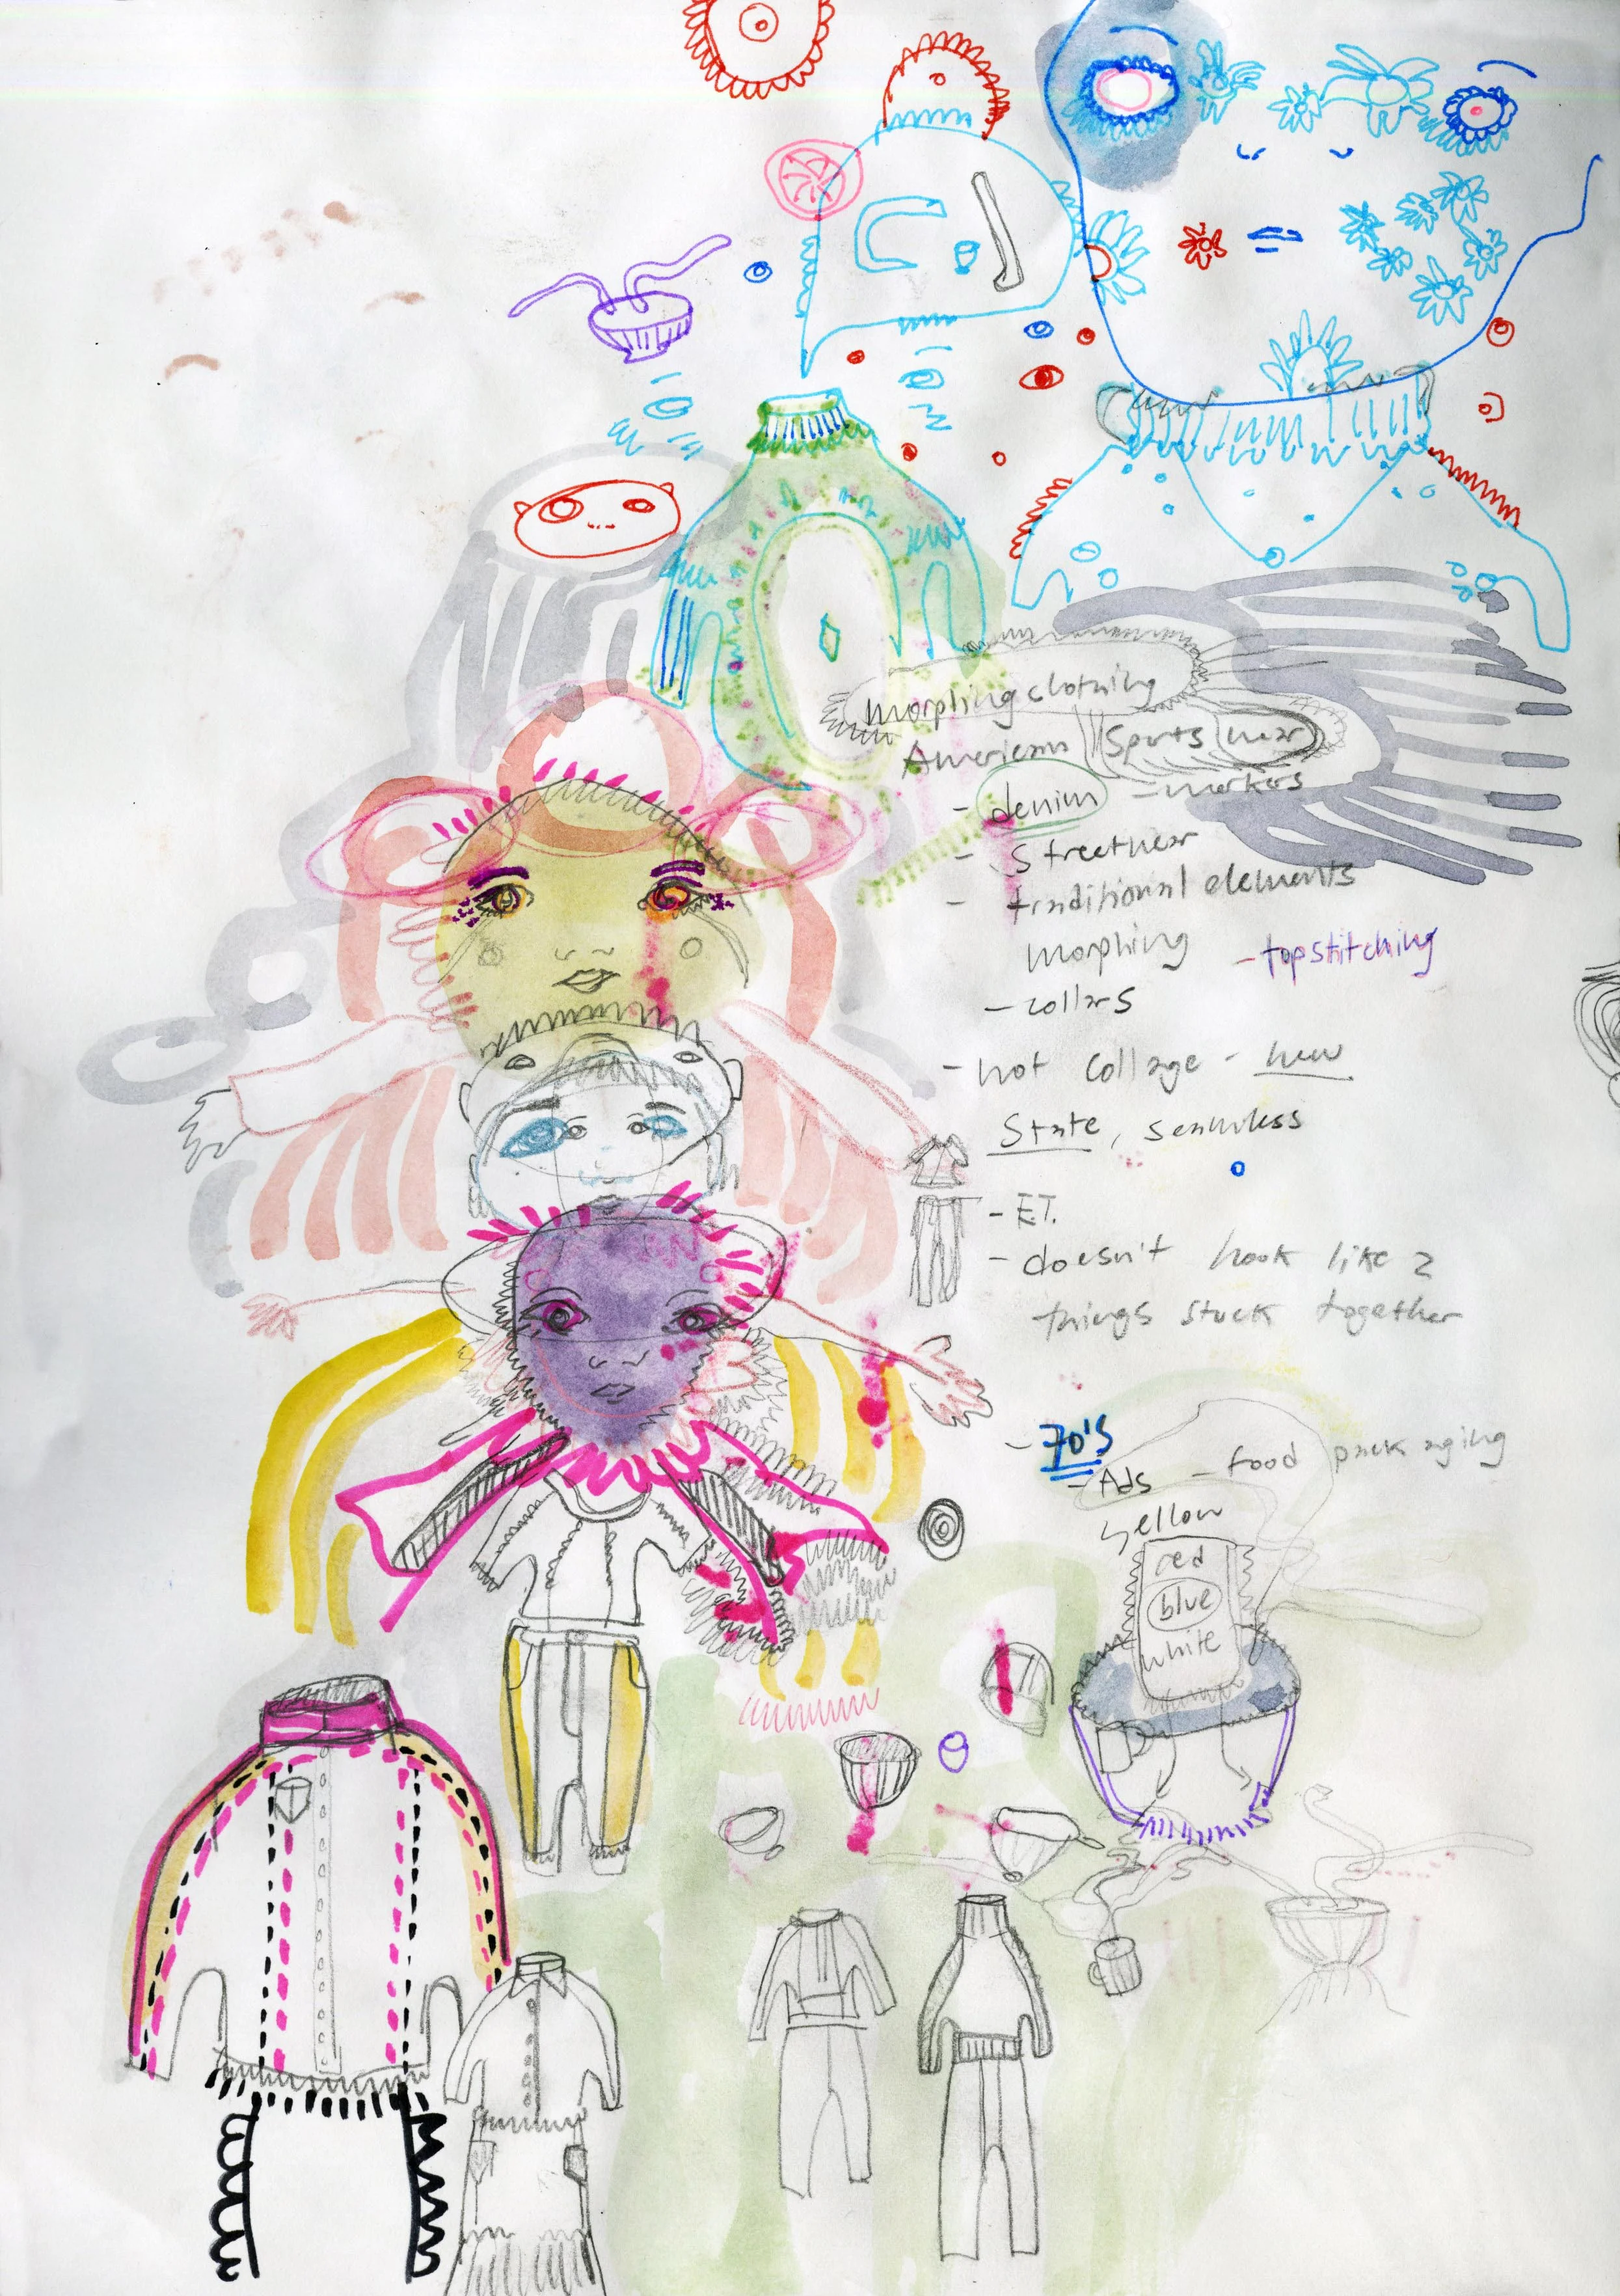 morphing clothing
American Sportswear
- denim - markers
- Streetwear
- traditional elements
morphing - topstitching
- collars
- not collage - new
State, seamless
- E.T.
- doesn't look like 2
things stuck together
- 70's
- Ads - food packaging
yellow
red
blue
white